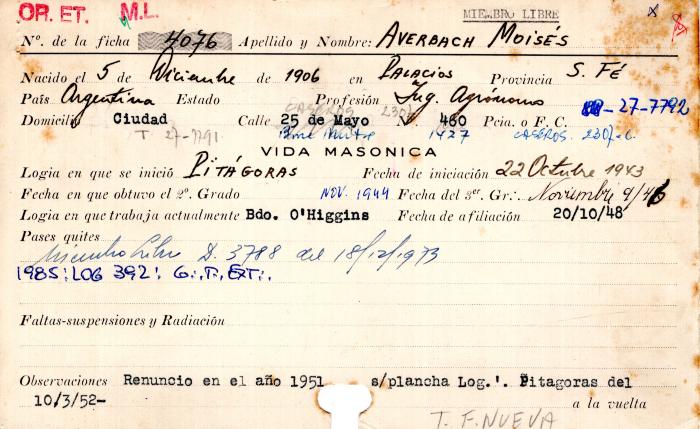 OR. ET. M.L. MIEMBRO LIBRE x
Nº. de la ficha 4076 Apellido y Nombre: AVERBACH MOISÉS
Nacido el 5 de Diciembre de 1906 en PALACIOS Provincia S. FÉ
País Argentina Estado Profesión Ing. Agrónomo -27-7792
CASEROS 2307
Domicilio Ciudad Calle 25 de Mayo Nº. 460 Pcia. o F. C.
T. 27-7791 Bmé Mitre 1427 CASEROS 2307-C.
VIDA MASONICA
Logia en que se inició PITÁGORAS Fecha de iniciación 22 Octubre 1943
Fecha en que obtuvo el 2º. Grado NOV. 1944 Fecha del 3er. Gr: Noviembre 9/46
Logia en que trabaja actualmente Bdo. O'Higgins Fecha de afiliación 20/10/48
Pases quites
Miembro Libre D. 3788 del 18/12/1973
1985: LOG 392: G.·.T.·.EXT.·.
Faltas-suspensiones y Radiación
Observaciones Renuncio en el año 1951 s/plancha Log.'. Pitagoras del
10/3/52- a la vuelta
T. F. NUEVA